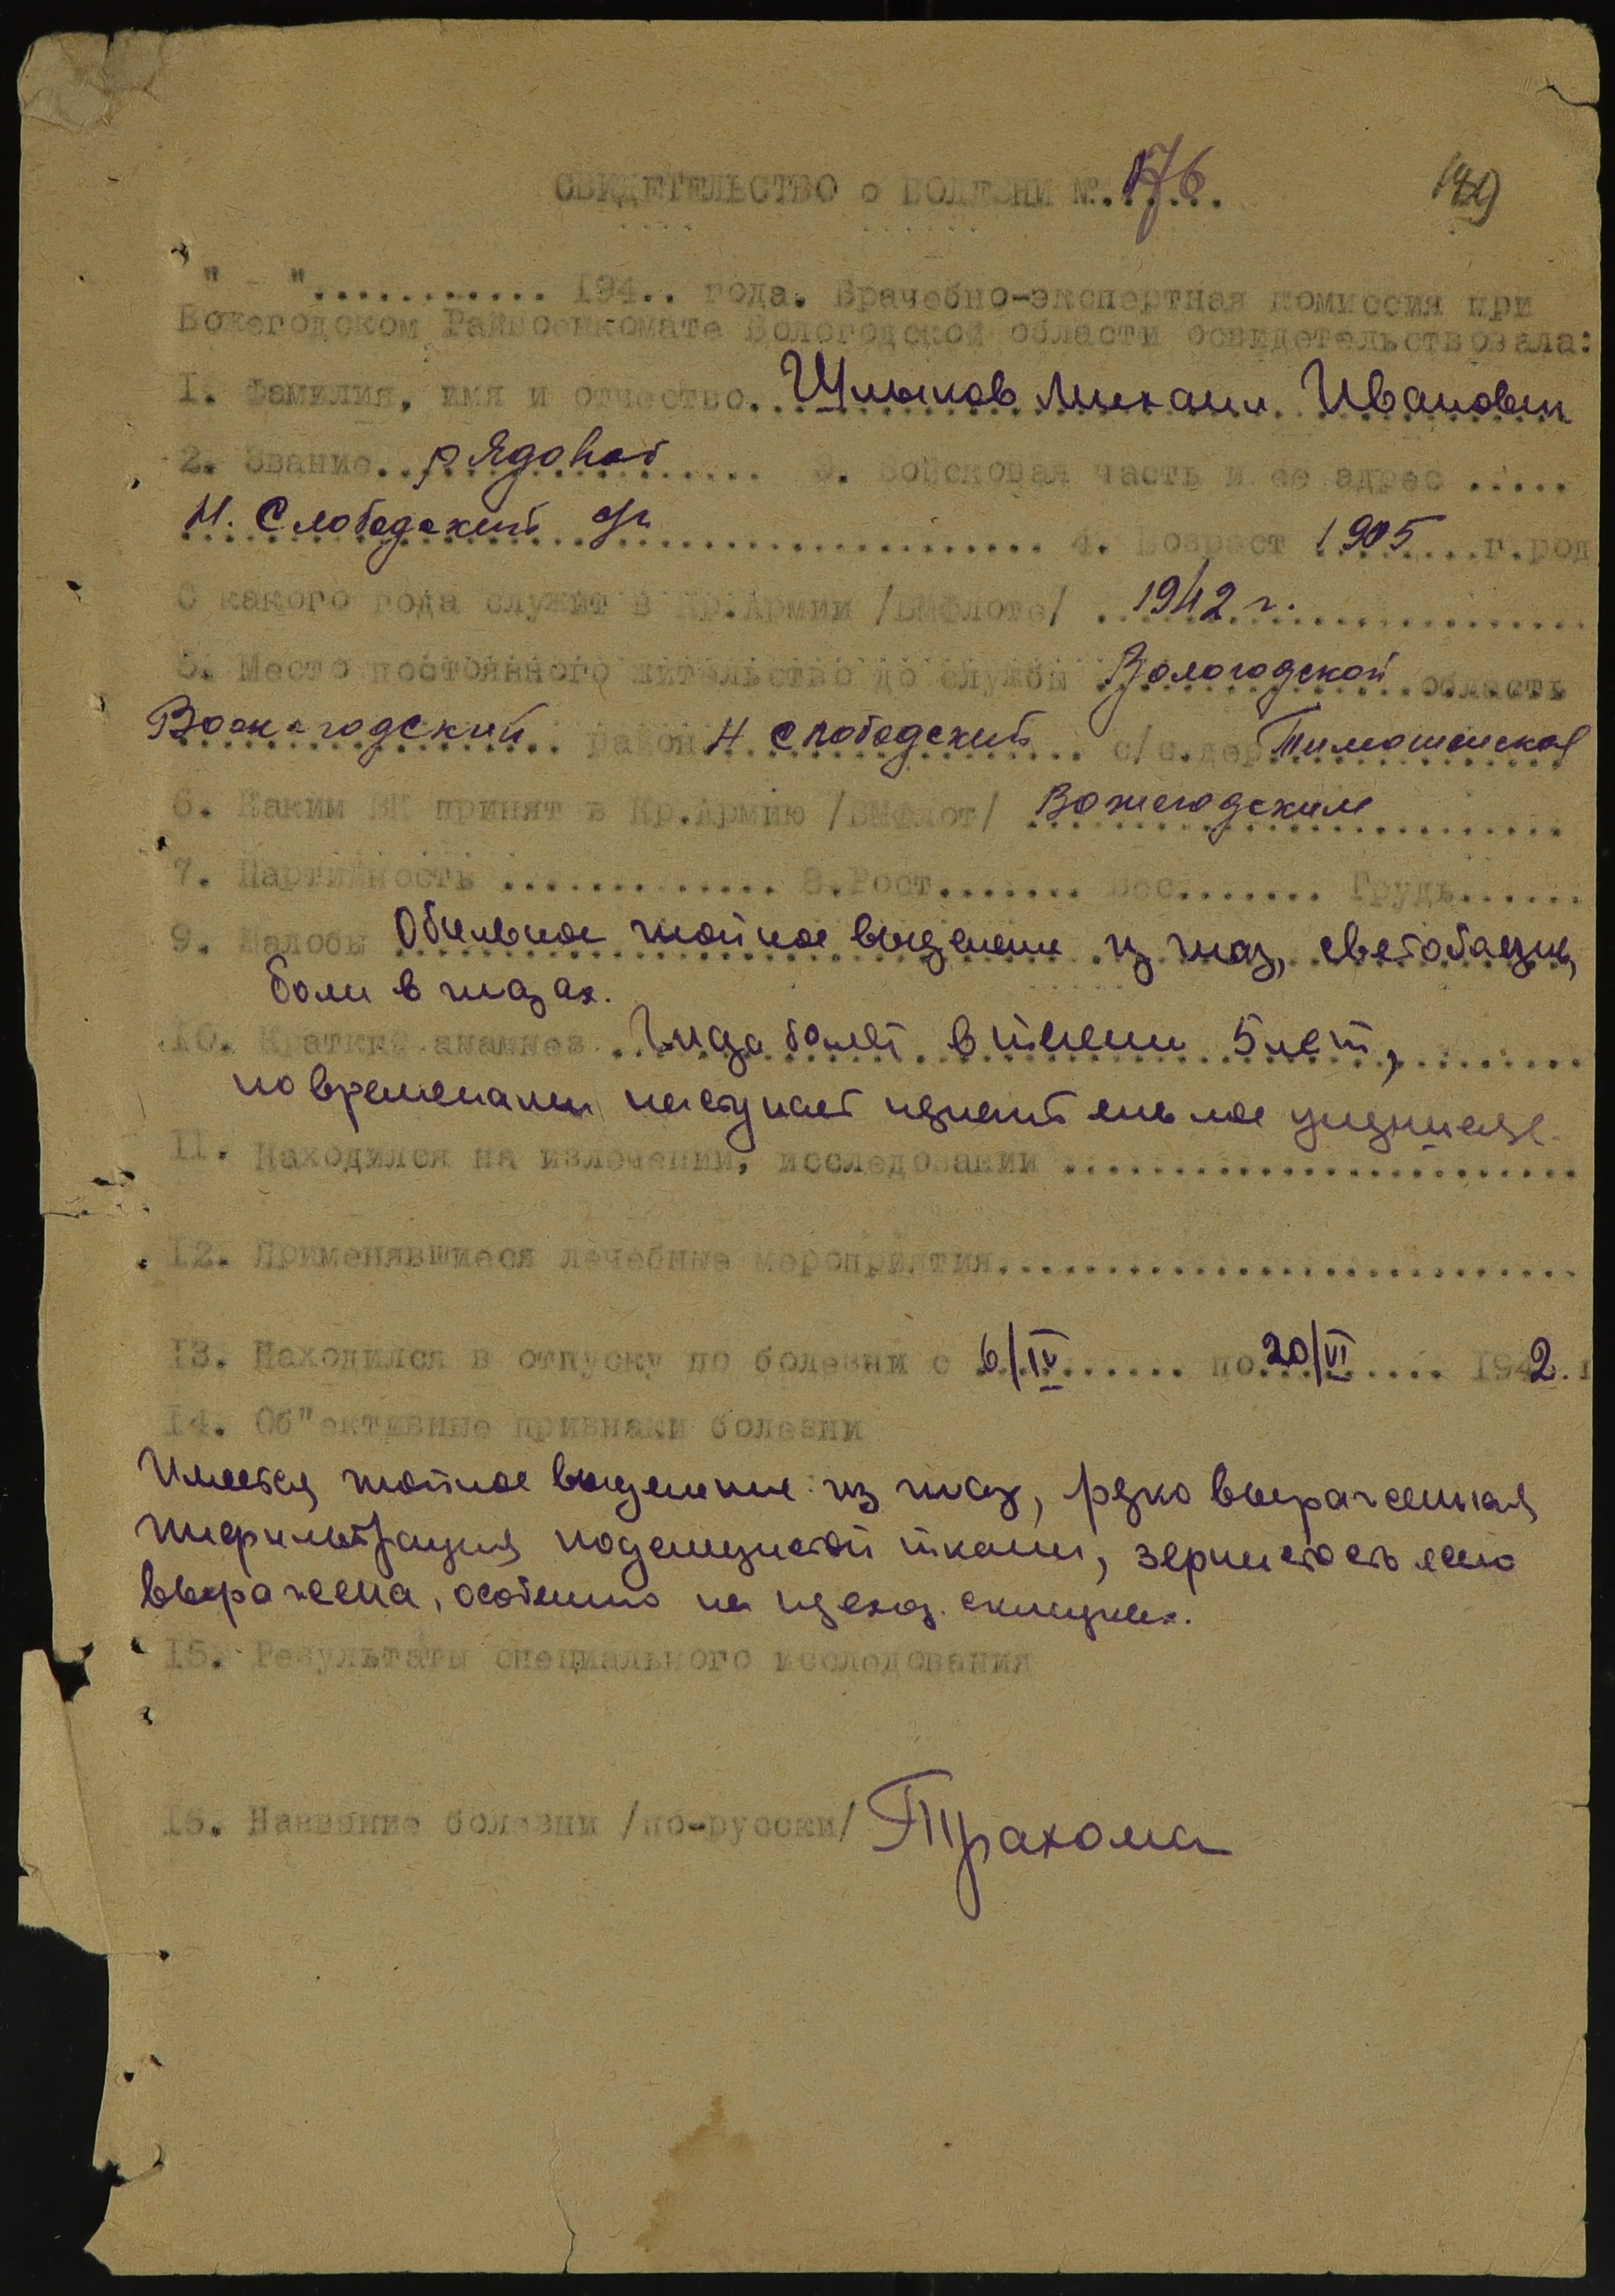 СВИДЕТЕЛЬСТВО о БОЛЕЗНИ №. 176
" - "........... 194.. года. Врачебно-экспертная комиссия при
Вожегодском Райвоенкомате Вологодской области освидетельствовала:
1. Фамилия, имя и отчество. Шлыков Михаил Иванович
2. Звание. рядовой 3. Войсковая часть и ее адрес .....
Н. Слободский 4. Возраст 1905 г.род
С какого года служит в Кр.Армии /ВМФлоте/ 1942 г.
5. Место постоянного жительство до службы Вологодской область
Вожегодский район Н Слободский с/с.дер. Тимошинская
6. Каким ВК принят в Кр.Армию /ВМФлот/ Вожегодским
7. Партийность ............. 8.Рост....... Вес....... Грудь......
9. Жалобы Обильное гнойное выделение из глаз, светобоязнь,
боли в глазах.
10. Краткий анамнез Глаза болят в течении 5 лет,
по временами наступает
11. Находился на излечении, исследовании ........................
12. Применявшиеся лечебные мероприятия...........................
13. Находился в отпуску по болезни с 6/IV по 20/VI 1942. г
14. Об"ективные признаки болезни
Имеется гнойное выделение из глаз, резко выраженная
инфильтрация подслизистой ткани, зернистость ясно
выражена, особенно на
15. Результаты специального исследования
16. Название болезни /по-русски/ Трахома